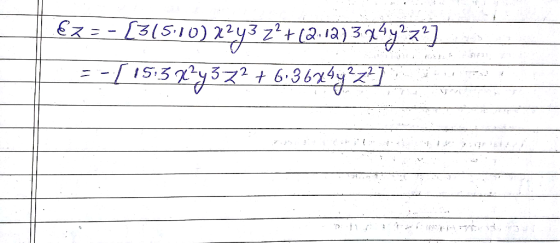 Ez = - [3(5.10) x²y³z² + (2.12) 3x⁴y²z²]
= - [15.3x²y³z² + 6.36x⁴y²z²]